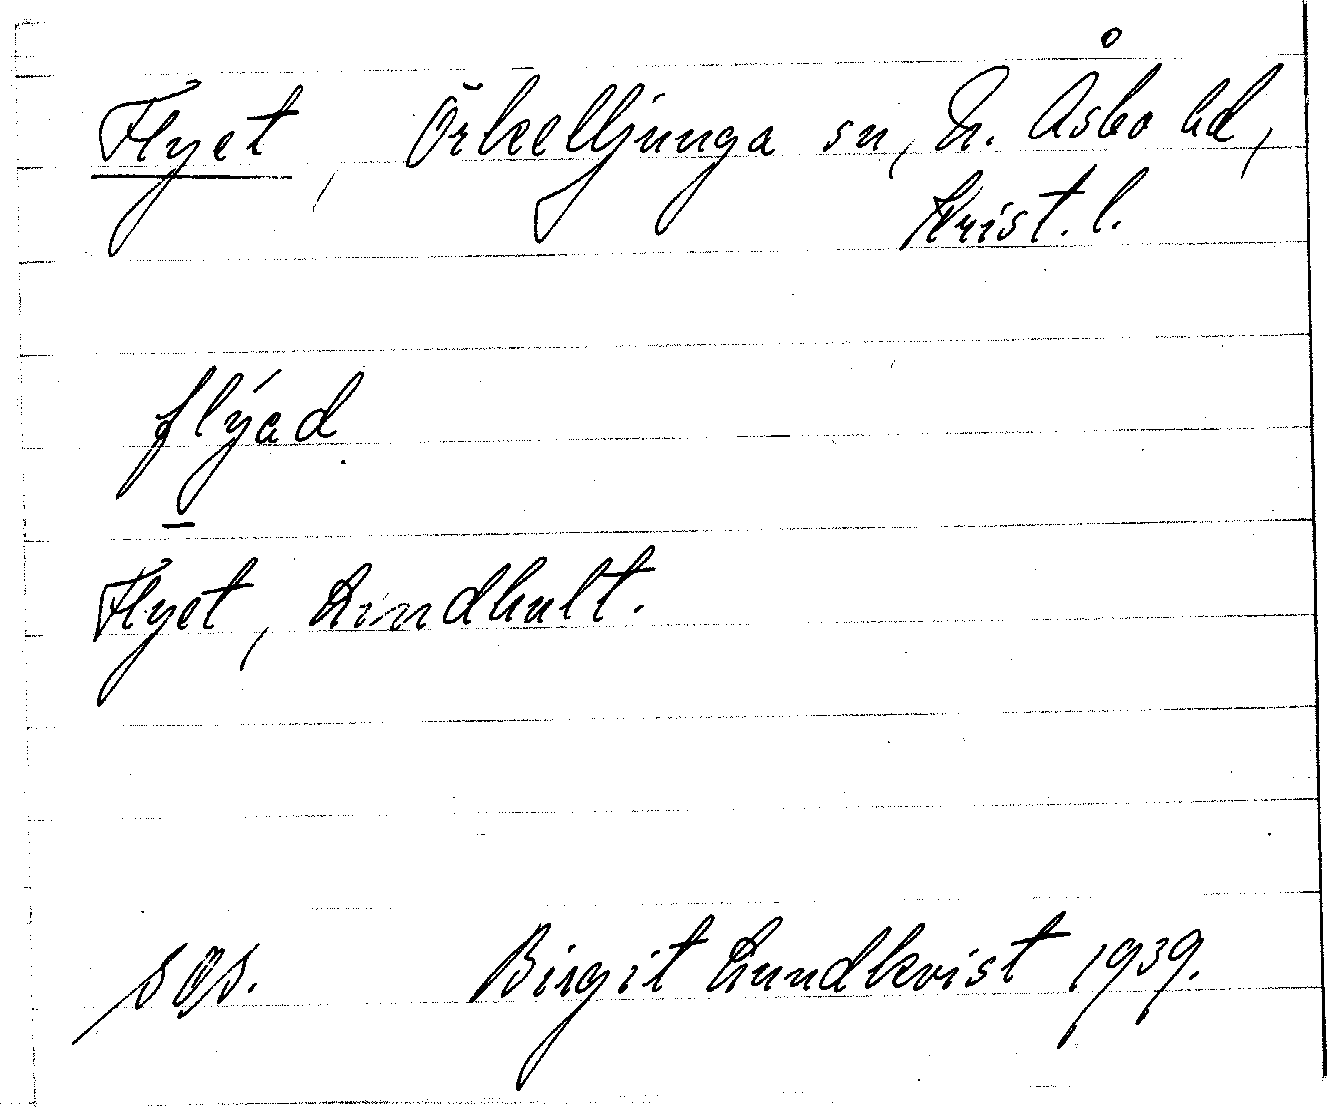 Flyet, Örkelljunga sn, N. Åsbo hd,
Krist. l.
flýad
Flyet, Lindhult.
sgs. Birgit Lundkvist 1939.